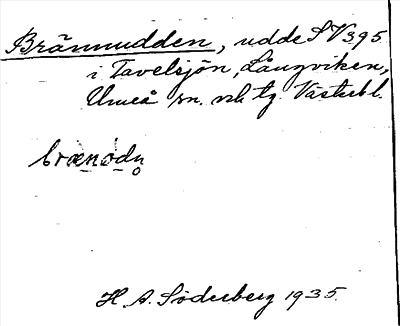 Brännudden, udde S V 395
i Tavelsjön, Långviken,
Umeå sn. och tg. Västerbl.
brænødn
H. A. Söderberg 1935.